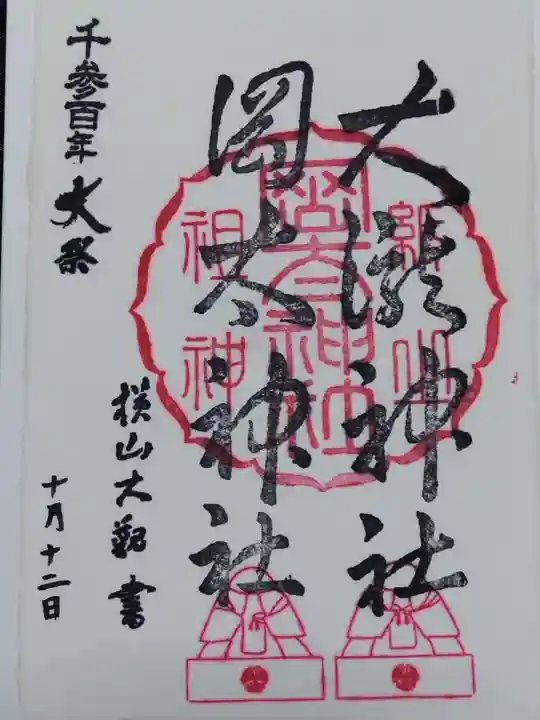 大瀧神社
岡太神社
紙
祖神
岡太神社
千参百年大祭
横山大観書
十月十二日